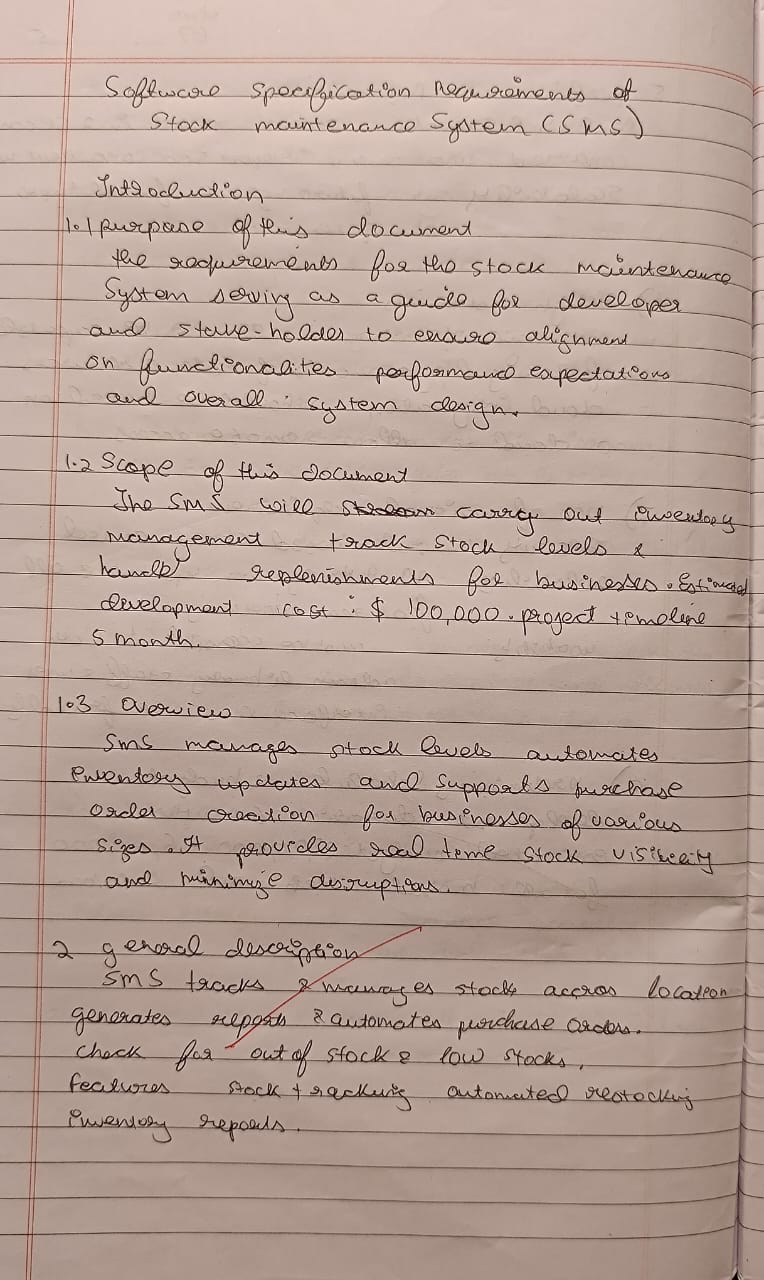 Software specification requirements of
Stock maintenance System (SMS)
Introduction
1.1 purpose of this document
the requirements for the stock maintenance
System serving as a guide for developer
and stake-holder to ensure alignment
on functionalities performance expectations
and overall system design.
1.2 Scope of this document
The SMS will carry out inventory
management track stock levels &
handle replenishments for businesses. Estimated
development cost : $ 100,000. project timeline
5 month.
1.3 overview
SMS manages stock levels automates
inventory updates and supports purchase
order creation for businesses of various
sizes. It provides real time stock visibility
and minimize disruptions.
2 general description
SMS tracks & manages stock accros location
generates reports & automates purchase orders.
check for out of stock & low stocks,
features stock tracking automated restocking
inventory reports.